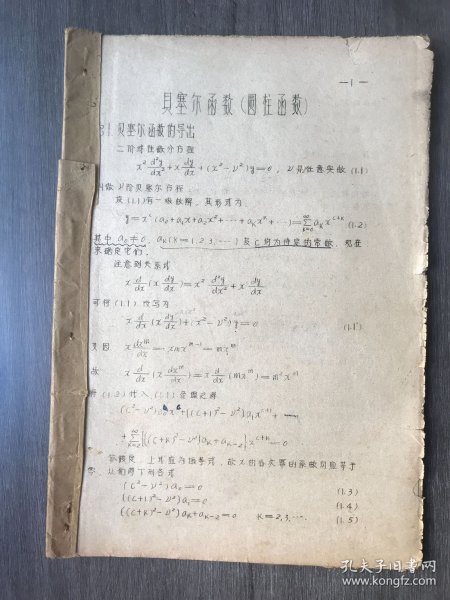 —1—
貝塞尔函数(圆柱函数)
§1 贝塞尔函数的导出
二阶线性微分方程
x² d²y/dx² + x dy/dx + (x² − ν²)y = 0, ν是任意实数 (1.1)
叫做ν阶贝塞尔方程
设(1.1)有一级数解,其形式为
y = x^c (a₀ + a₁x + a₂x² + ⋯ + a_K x^K + ⋯) = Σ_{K=0}^∞ a_K x^{c+K} (1.2)
其中 a₀ ≠ 0, a_K (K = 1, 2, 3, ⋯) 及 c 均为待定的常数, 现在
来确定它们.
注意到关系式
x d/dx (x dy/dx) = x² d²y/dx² + x dy/dx
可将(1.1)改写为
x d/dx (x dy/dx) + (x² − ν²)y = 0 (1.1')
又因 x dx^m/dx = x m x^{m−1} = m x^m
故 x d/dx (x dx^m/dx) = x d/dx (m x^m) = m² x^m
将(1.2)代入(1.1)整理之得
(c² − ν²)a₀x^c + ((c+1)² − ν²)a₁x^{c+1} +
+ Σ_{K=2}^∞ {((c+K)² − ν²)a_K + a_{K−2}} x^{c+K} = 0
上式应为恒等式, 故x的各次幂的系数均应等于
零, 从而得下列各式
(c² − ν²)a₀ = 0 (1.3)
((c+1)² − ν²)a₁ = 0 (1.4)
((c+K)² − ν²)a_K + a_{K−2} = 0 K = 2, 3, ⋯. (1.5)
孔夫子旧书网
www.kongfz.com